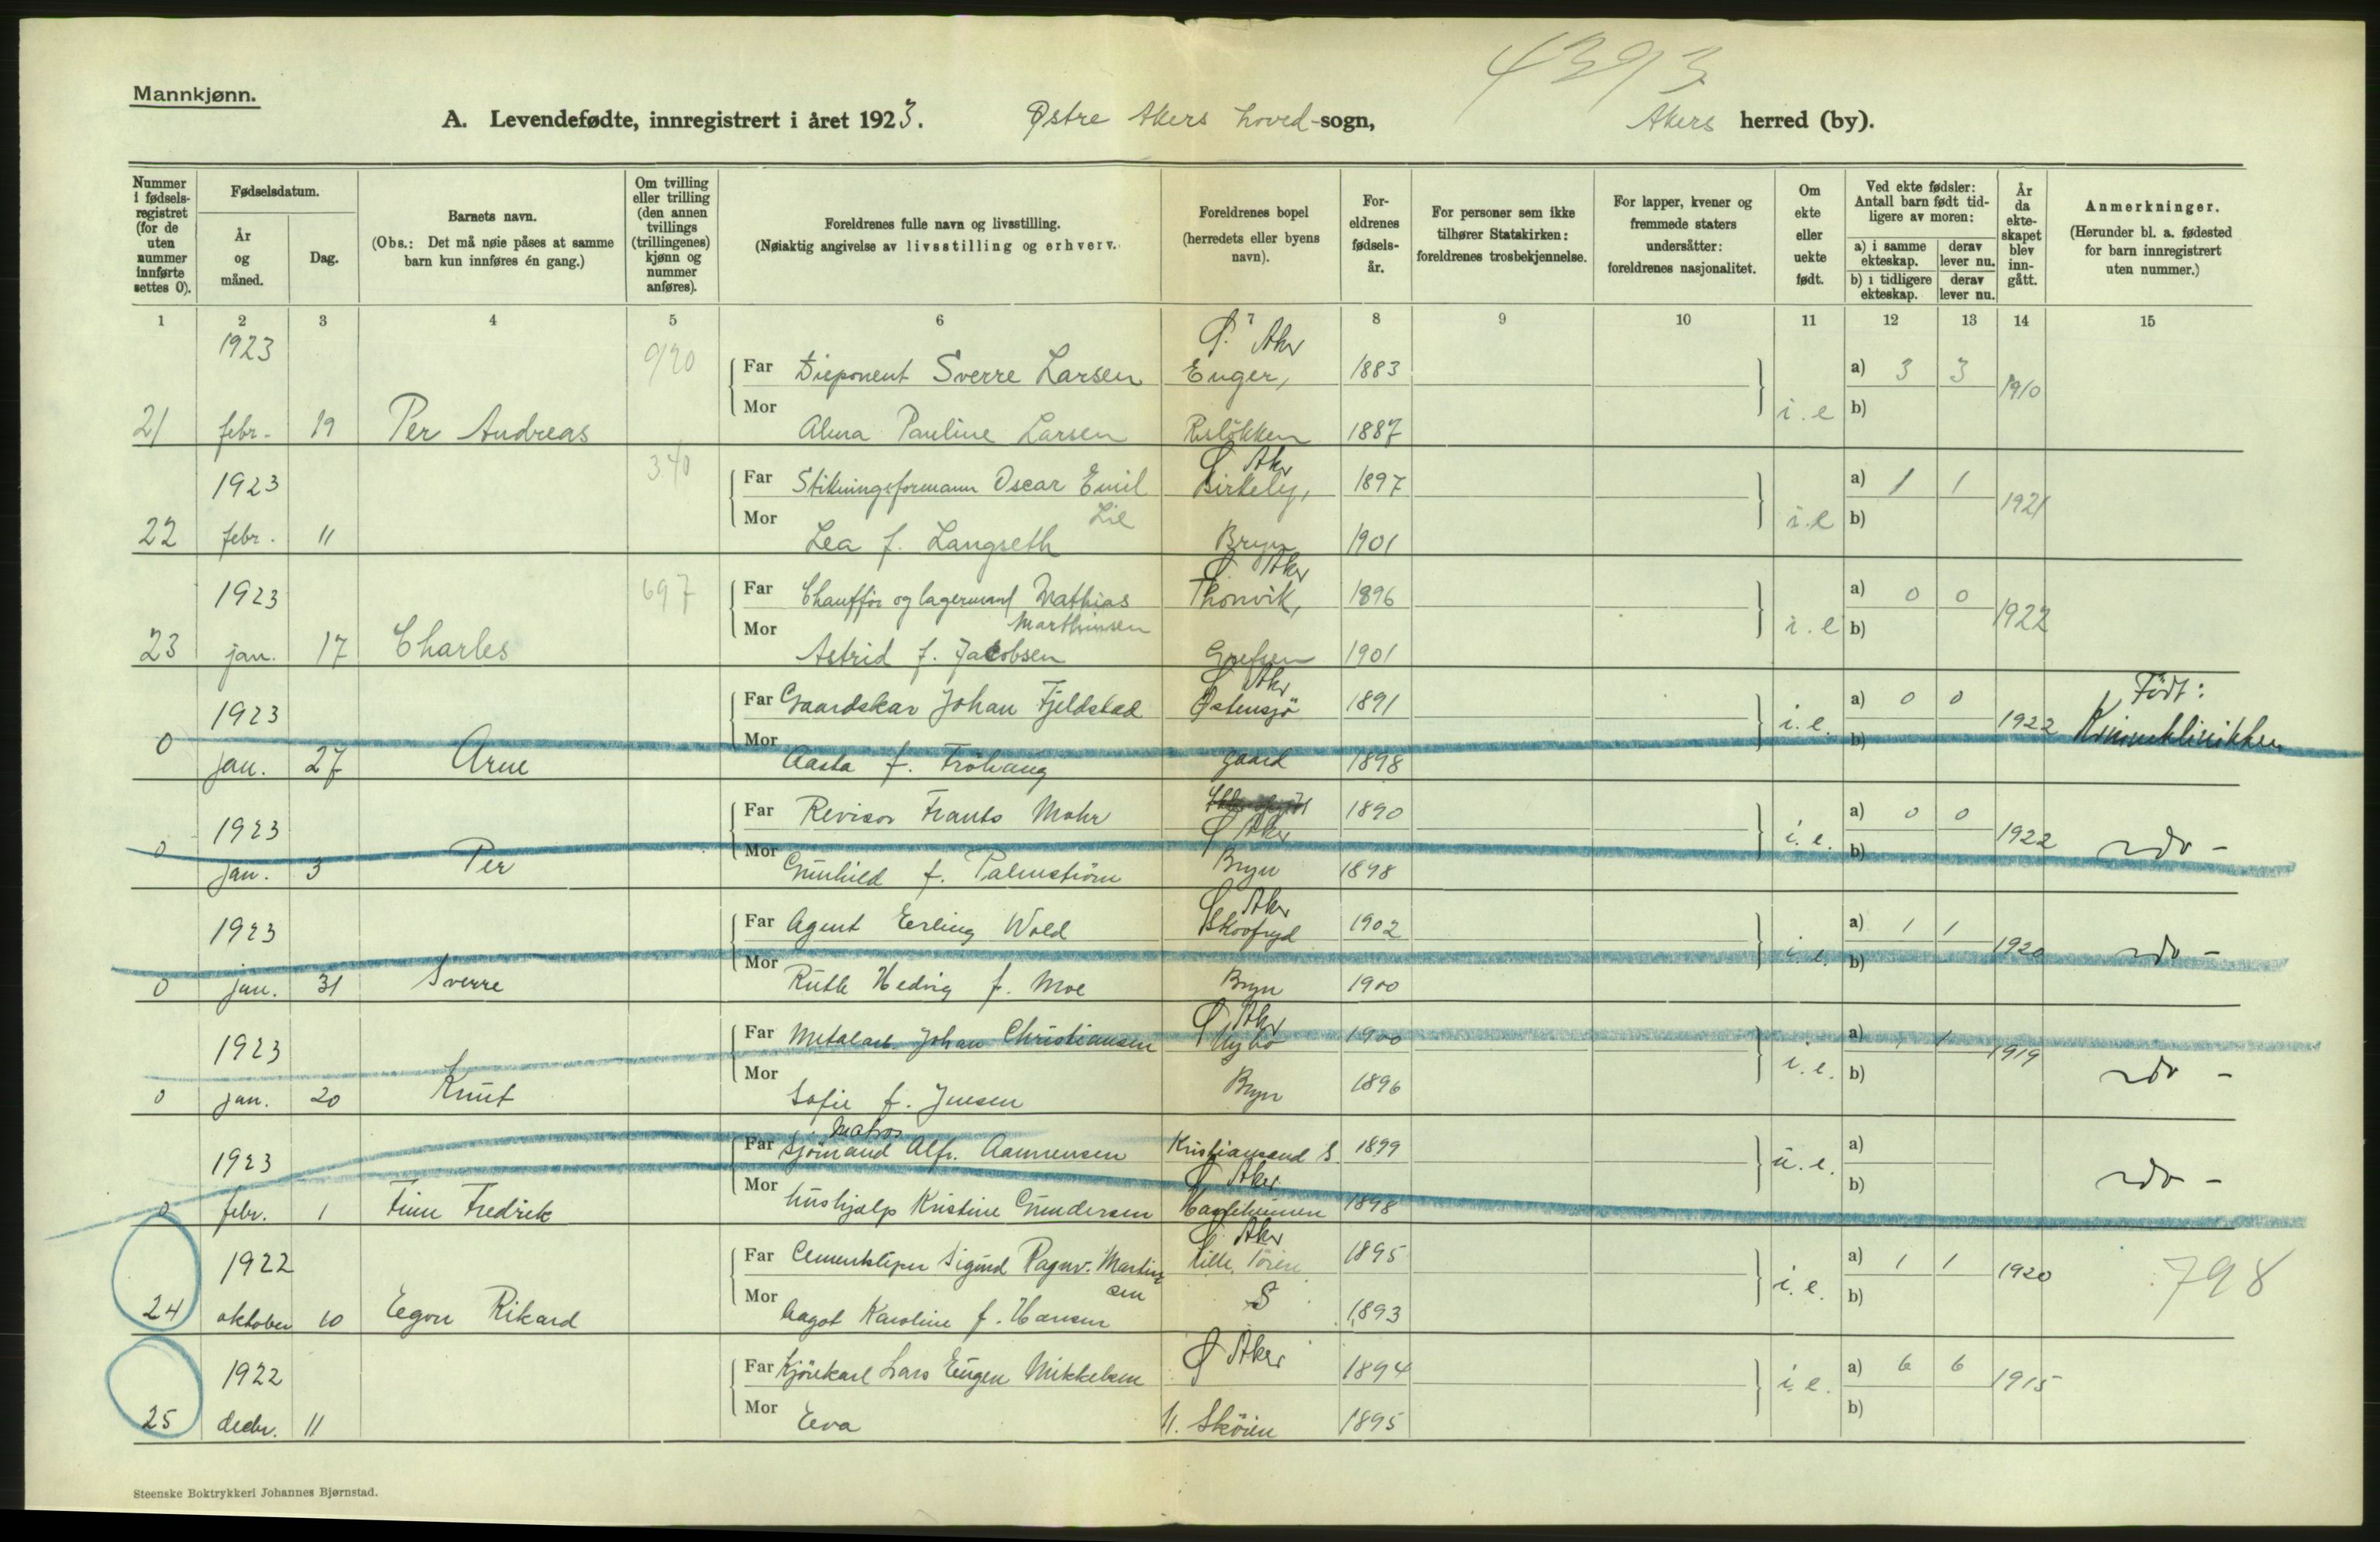 4393
Mannkjønn.
A. Levendefødte, innregistrert i året 1923. Østre Akers hoved-sogn, Akers herred (by).
Nummer i fødselsregistret (for de uten nummer innførte settes 0).
Fødselsdatum.
År og måned.
Dag.
Barnets navn.
(Obs.: Det må nøie påses at samme barn kun innføres én gang.)
Om tvilling eller trilling (den annen tvillings (trillingenes) kjønn og nummer anføres).
Foreldrenes fulle navn og livsstilling.
(Nøiaktig angivelse av livsstilling og erhverv.)
Foreldrenes bopel (herredets eller byens navn).
Foreldrenes fødselsår.
For personer som ikke tilhører Statskirken: foreldrenes trosbekjennelse.
For lapper, kvener og fremmede staters undersåtter: foreldrenes nasjonalitet.
Om ekte eller uekte født.
Ved ekte fødsler: Antall barn født tidligere av moren:
a) i samme ekteskap. derav lever nu.
b) i tidligere ekteskap. derav lever nu.
År da ekteskapet blev inngått.
Anmerkninger.
(Herunder bl. a. fødested for barn innregistrert uten nummer.)
1 2 3 4 5 6 7 8 9 10 11 12 13 14 15
1923 Ø. Aker
920 Far Disponent Sverre Larsen Enger, 1883 a) 3 3 1910
21 febr. 19 Per Andreas Mor Alma Pauline Larsen Risløkken 1887 i.e b)
Ø Aker
1923 340 Far Stikningsformann Oscar Emil Lie Birkely, 1897 a) 1 1 1921
22 febr. 11 Mor Lea f. Langseth Bryn 1901 i.e b)
Ø Aker
1923 697 Far Chauffør og lagermand Mathias Marthinsen Thonvik, 1896 a) 0 0 1922
23 jan. 17 Charles Mor Astrid f. Jacobsen Grefsen 1901 i.e b)
Ø Aker
1923 Far Gaardskar Johan Fjeldstad Østensjö 1891 a) 0 0 1922 Født: Kvinneklinikken
0 jan. 27 Arne Mor Aasta f. Fröhaug gaard 1898 i.e. b)
1923 Far Revisor Frants Mohr Ø Aker 1890 a) 0 0 1922 —do—
0 jan. 3 Per Mor Gunhild f. Palmström Bryn 1898 i.e. b)
Ø Aker
1923 Far Agent Erling Wold Skovfryd 1902 a) 1 1 1920 —do—
0 jan. 31 Sverre Mor Ruth Hedvig f. Moe Bryn 1900 i.e. b)
Ø Aker
1923 Far Metalarb. Johan Christiansen Nybo 1900 a) 1 1 1919
0 jan. 20 Knut Mor Sofie f. Jensen Bryn 1896 i.e. b) —do—
Matros
1923 Far Sjömand Alfr. Aanensen Kristiansand S. 1899 u.e. a)
Ø Aker
0 febr. 1 Finn Fredrik Mor hushjælp Kristine Gundersen 1898 b) —do—
Ø. Aker
1922 Far Sigurd Ragnv. Martinsen Lille Töien 1895 a) 1 1 1920 798
24 oktober 10 Egon Rikard Mor Aagot Karoline f. Hansen S 1893 i.e. b)
1922 Far Kjörekarl Lars Eugen Mikkelsen Ø Aker 1894 a) 6 6 1915
25 decbr. 11 Mor Eva N. Skøien 1895 i.e. b)
Steenske Boktrykkeri Johannes Bjørnstad.